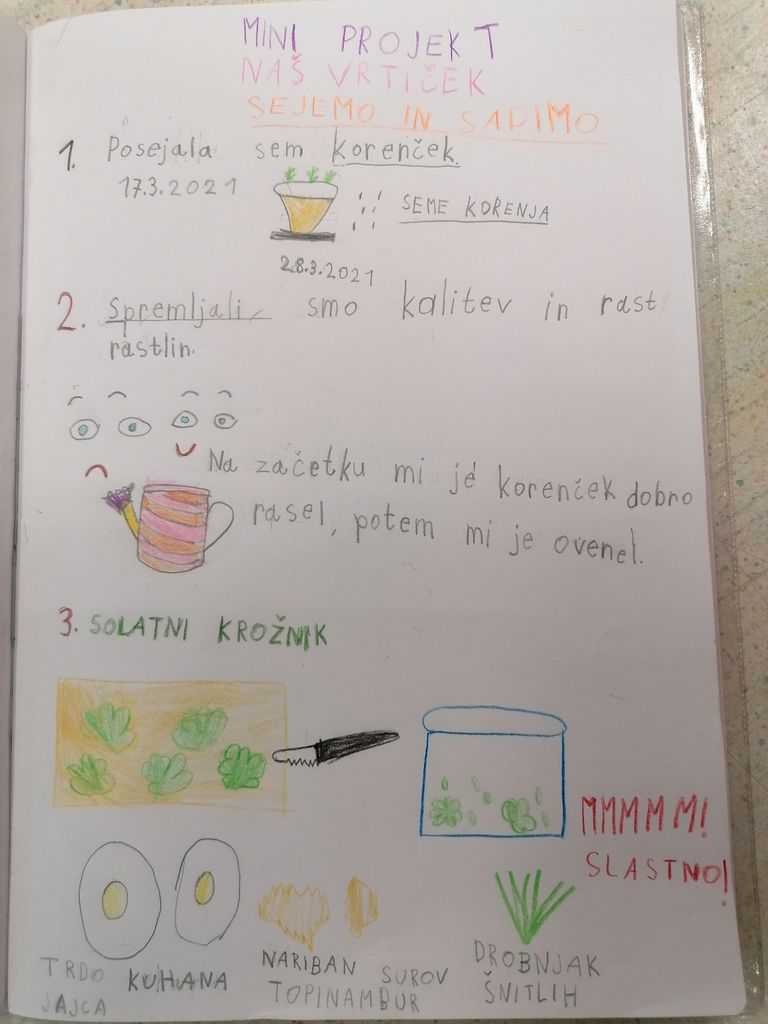 MINI PROJEKT
NAŠ VRTIČEK
SEJEMO IN SADIMO
1. Posejala sem korenček.
17.3.2021
SEME KORENJA
28.3.2021
2. Spremljali smo kalitev in rast
rastlin.
Na začetku mi je korenček dobro
rasel, potem mi je ovenel.
3. SOLATNI KROŽNIK
MMMMM!
SLASTNO!
TRDO KUHANA
JAJCA
NARIBAN SUROV
TOPINAMBUR
DROBNJAK
ŠNITLIH